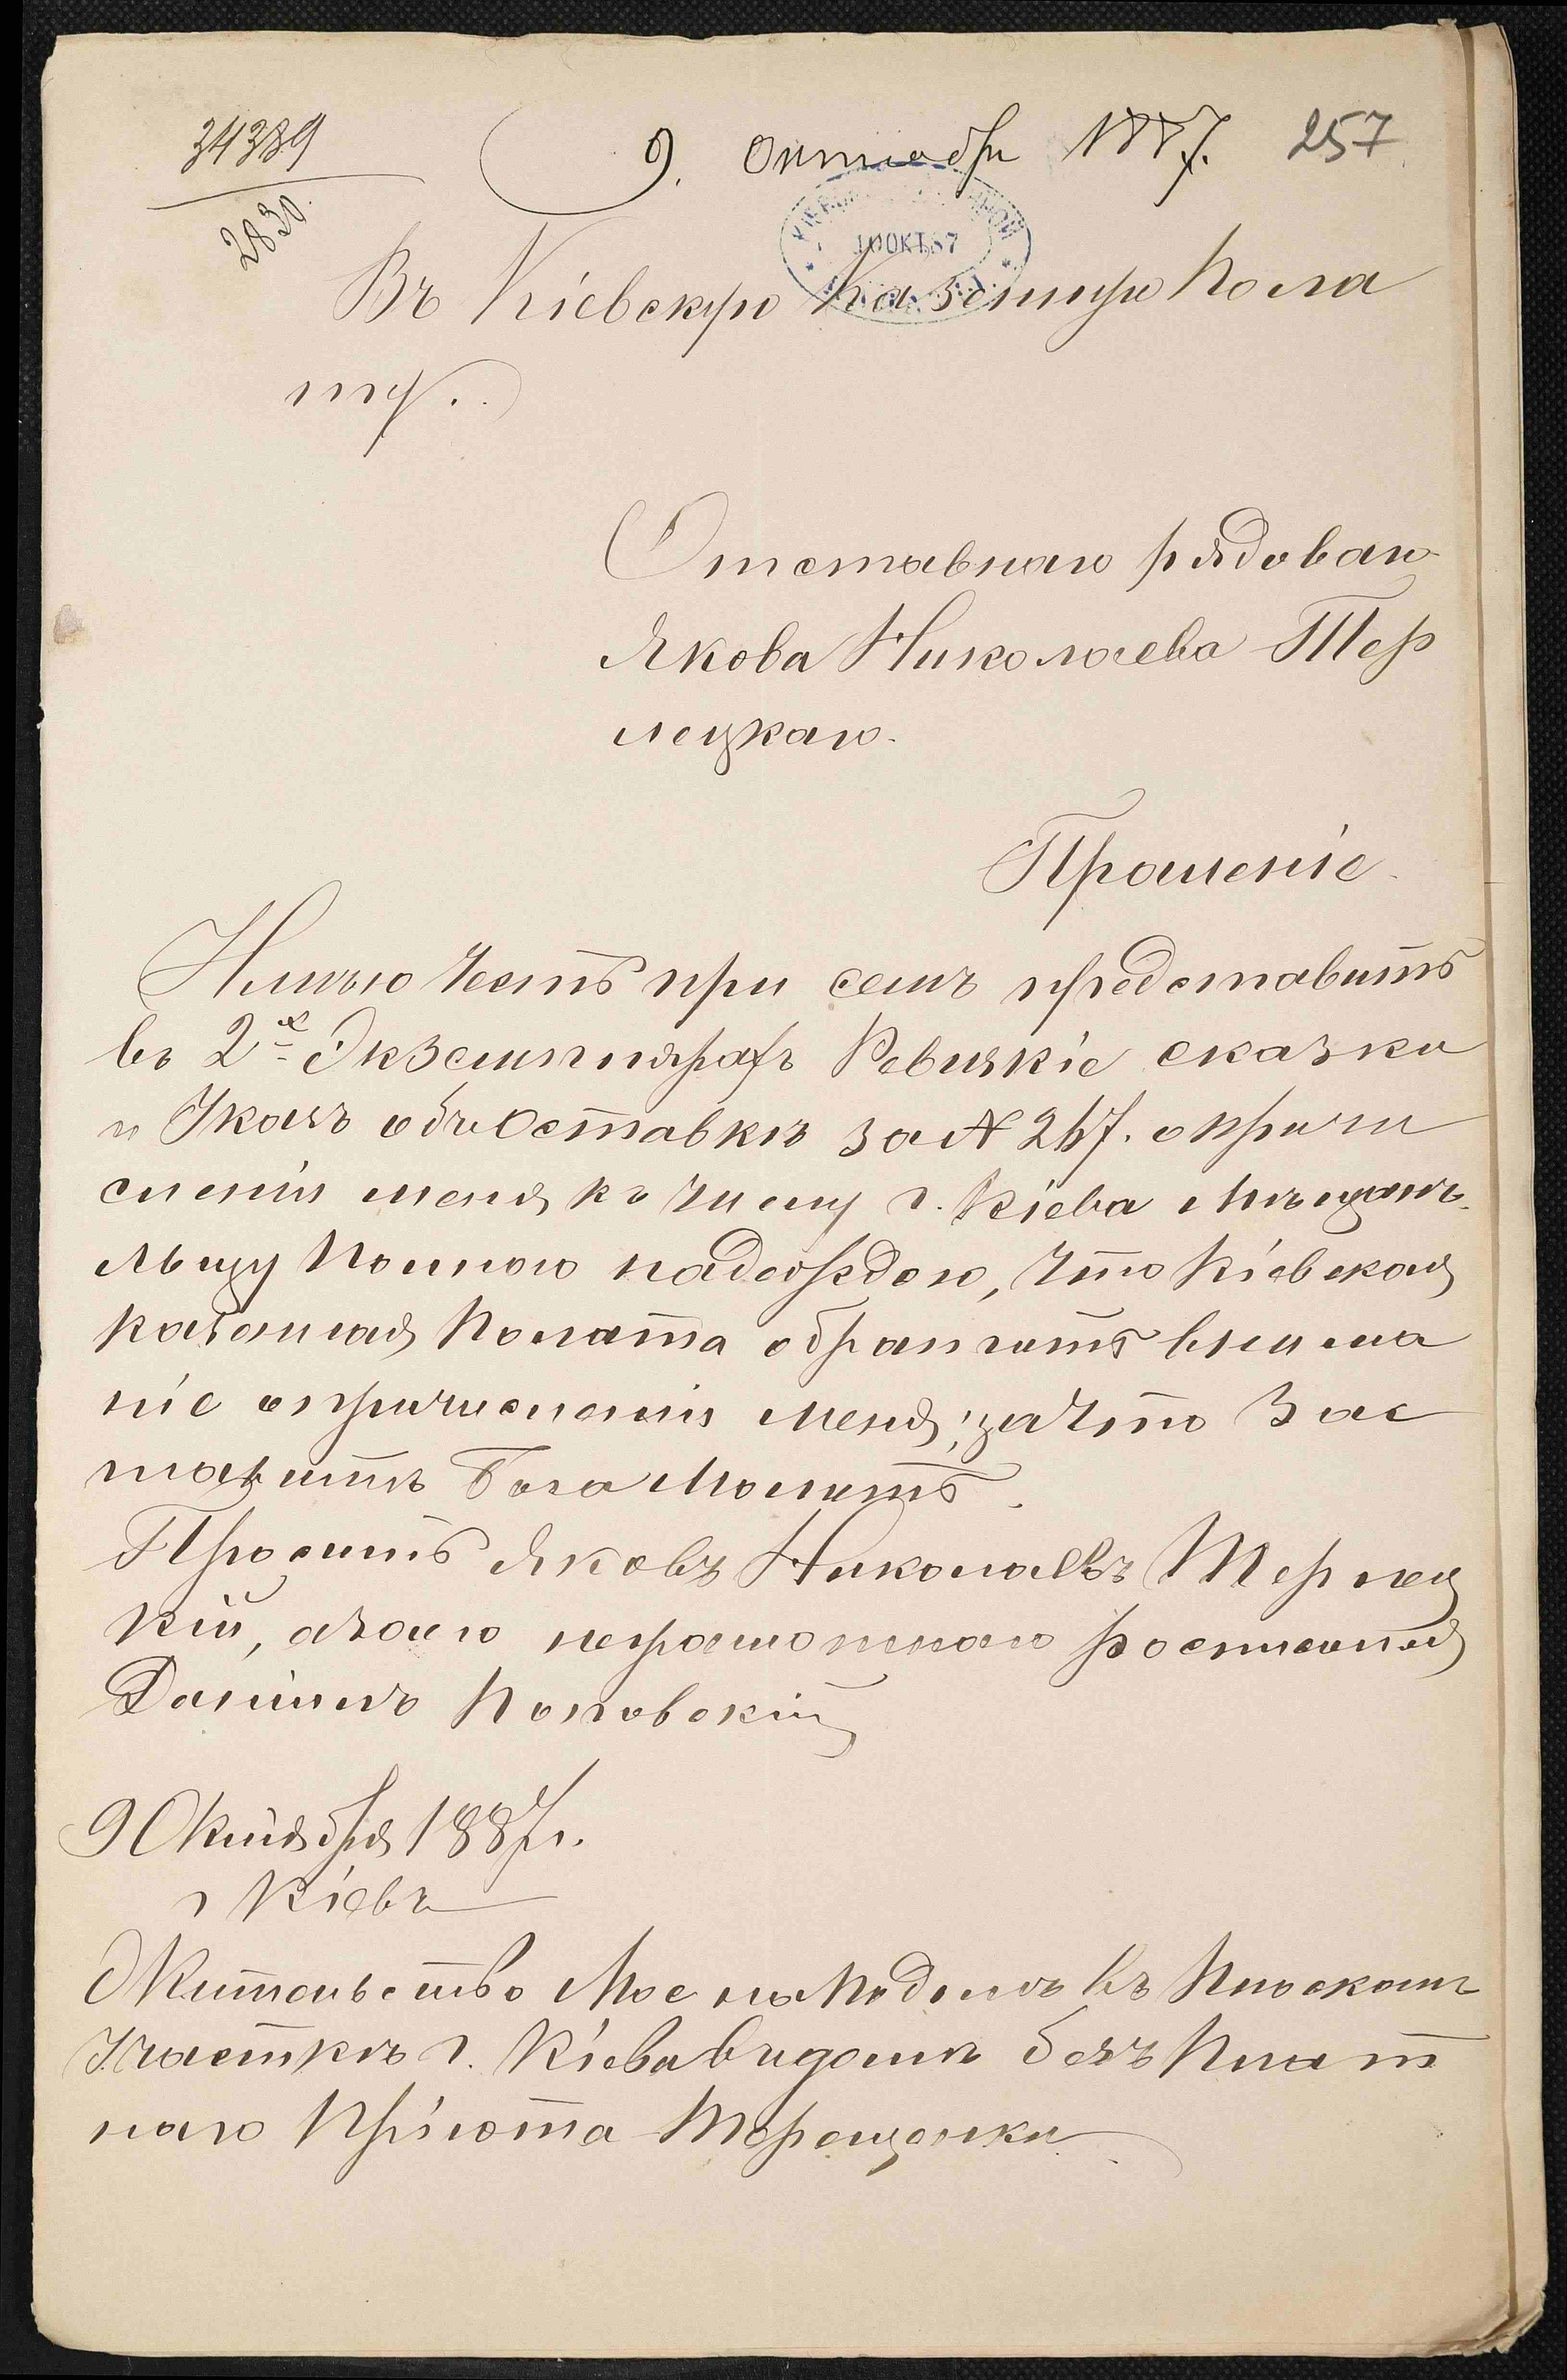 34389
2830
9. октября 1887. 257
10 ОКТ. 87
Въ Кіевскую Казенную Пола
ту.
Отставнаго рядоваго
Якова Николаева Тер
лецкаго.
Прошеніе.
Имѣю честь при семъ представить
въ 2х Экземплярахъ Ревизкіе сказки
и Указъ объ Оставкѣ за № 267. о причи
сленіи меня къ числу г. Кіева Мѣщанъ.
Льщу Полною надеждою, что Кіевская
казенная Полата обратитъ внима
ніе опричисленіи меня, зачто Зас
тавитъ Бога Молить.
Проситъ Яковъ Николаевъ Терлец
кій, азаего неграмотнаго росписался
Даніилъ Поповскій
9 Октября 1887 г.
г Кіевъ
Жительство Мое на Подолѣ въ Плоскомъ
Участкѣ г. Кіева въ домѣ безъ Плат
наго Пріюта Терещенки